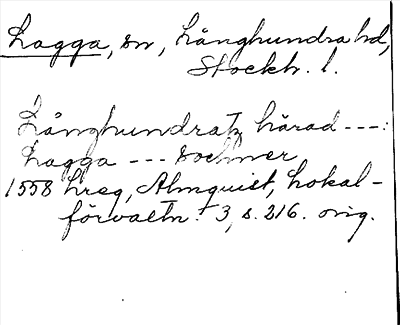 Lagga, sn, Långhundra hd,
Stockh. l.
Långhundratz härad ---:
Lagga --- sochner
1558 hreg, Almquist, Lokal-
förvaltn. 3, s. 216. orig.